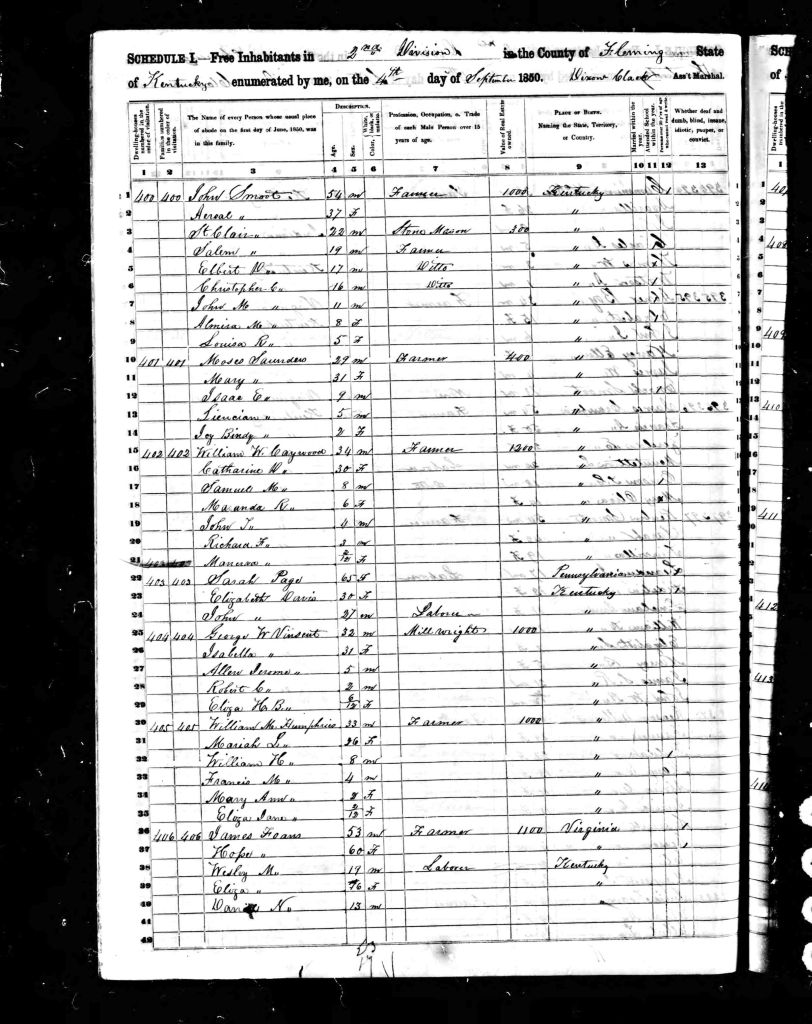 SCHEDULE I.—Free Inhabitants in 2nd Division in the County of Fleming State
of Kentucky enumerated by me, on the 4th day of September 1850. Dixon Clack Ass't Marshal.
Dwelling-houses numbered in the order of visitation.
Families numbered in the order of visitation.
The Name of every Person whose usual place of abode on the first day of June, 1850, was in this family.
DESCRIPTION.
Age.
Sex.
Color,
Profession, Occupation, or Trade of each Male Person over 15 years of age.
Value of Real Estate owned.
PLACE OF BIRTH. Naming the State, Territory, or Country.
Married within the year.
Attended School within the year.
Whether deaf and dumb, blind, insane, idiotic, pauper, or convict.
1 2 3 4 5 6 7 8 9 10 11 12 13
1 400 400 John Smoot 54 m Farmer 1000 Kentucky 1
2 " 37 F "
3 St Clair " 22 m Stone Mason 300 "
4 Salem " 19 m Farmer "
5 Elbert " 17 m Ditto "
6 Christopher C " 16 m Ditto "
7 John M " 11 m "
8 Almira M " 8 F "
9 Louisa R " 5 F "
10 401 401 Moses Saunders 29 m Farmer 400 "
11 Mary " 31 F "
12 Isaac E " 9 m " 1
13 " 5 m "
14 " 2 F "
15 402 402 William W. Caywood 34 m Farmer 1200 "
16 Catharine " 30 F "
17 Samuel M " 8 m "
18 R " 6 F "
19 John T " 4 m "
20 Richard F " 3 m "
21 Manerva " 2/12 F "
22 403 403 Sarah Page 65 F Pennsylvania
23 Elizabeth Davis 30 F Kentucky
24 John " 27 m Laborer "
25 404 404 George W Vinsent 32 m Mill wright 1000 "
26 Isabella " 31 F "
27 Allen Jerome " 5 m "
28 Robert C " 2 m "
29 Eliza H. B. " 6/12 F "
30 405 405 William Mc Humphries 33 m Farmer 1000 "
31 Mariah L " 26 F "
32 William H " 8 m " 1
33 Francis M " 4 m "
34 Mary Ann " 2 F "
35 Eliza Jane " 2/12 F "
36 406 406 James Foans 53 m Farmer 1100 Virginia 1
37 Hope " 60 F " 1
38 Wesley M " 19 m Laborer Kentucky
39 Eliza " 16 F "
40 N " 13 m "
41
42